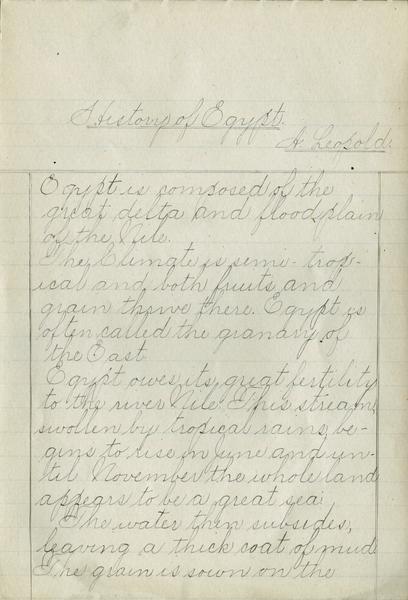 History of Egypt.
A. Leopold.
Egypt is composed of the
great delta and flood plain
of the Nile.
The Climate is semi-trop-
ical and both fruits and
grain thrive there. Egypt is
often called the granary of
the East
Egypt owes its great fertility
to the river Nile. This stream,
swollen by tropical rains, be-
gins to rise in June and un-
til November the whole land
appears to be a great sea.
The water then subsides,
leaving a thick coat of mud.
The grain is sown on the